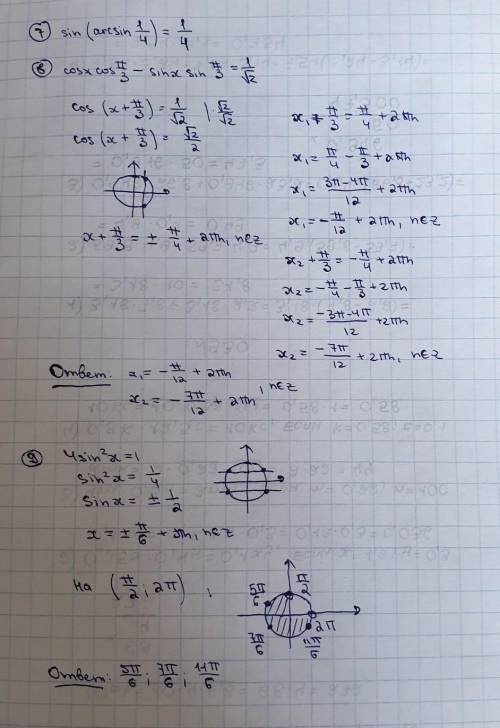 7) sin (arcsin 1/4) = 1/4
8) cosx cos π/3 − sinx sin π/3 = 1/√2
cos (x + π/3) = 1/√2 | · √2/√2
cos (x + π/3) = √2/2
x + π/3 = ± π/4 + 2πn, n∈z
x₁ + π/3 = π/4 + 2πn
x₁ = π/4 − π/3 + 2πn
x₁ = (3π−4π)/12 + 2πn
x₁ = −π/12 + 2πn, n∈z
x₂ + π/3 = −π/4 + 2πn
x₂ = −π/4 − π/3 + 2πn
x₂ = (−3π−4π)/12 + 2πn
x₂ = −7π/12 + 2πn, n∈z
Ответ: x₁ = −π/12 + 2πn
x₂ = −7π/12 + 2πn, n∈z
9) 4sin²x = 1
sin²x = 1/4
sinx = ± 1/2
x = ± π/6 + πn, n∈z
на (π/2 ; 2π) ;
5π/6 π/2
7π/6 11π/6 2π
Ответ: 5π/6 ; 7π/6 ; 11π/6